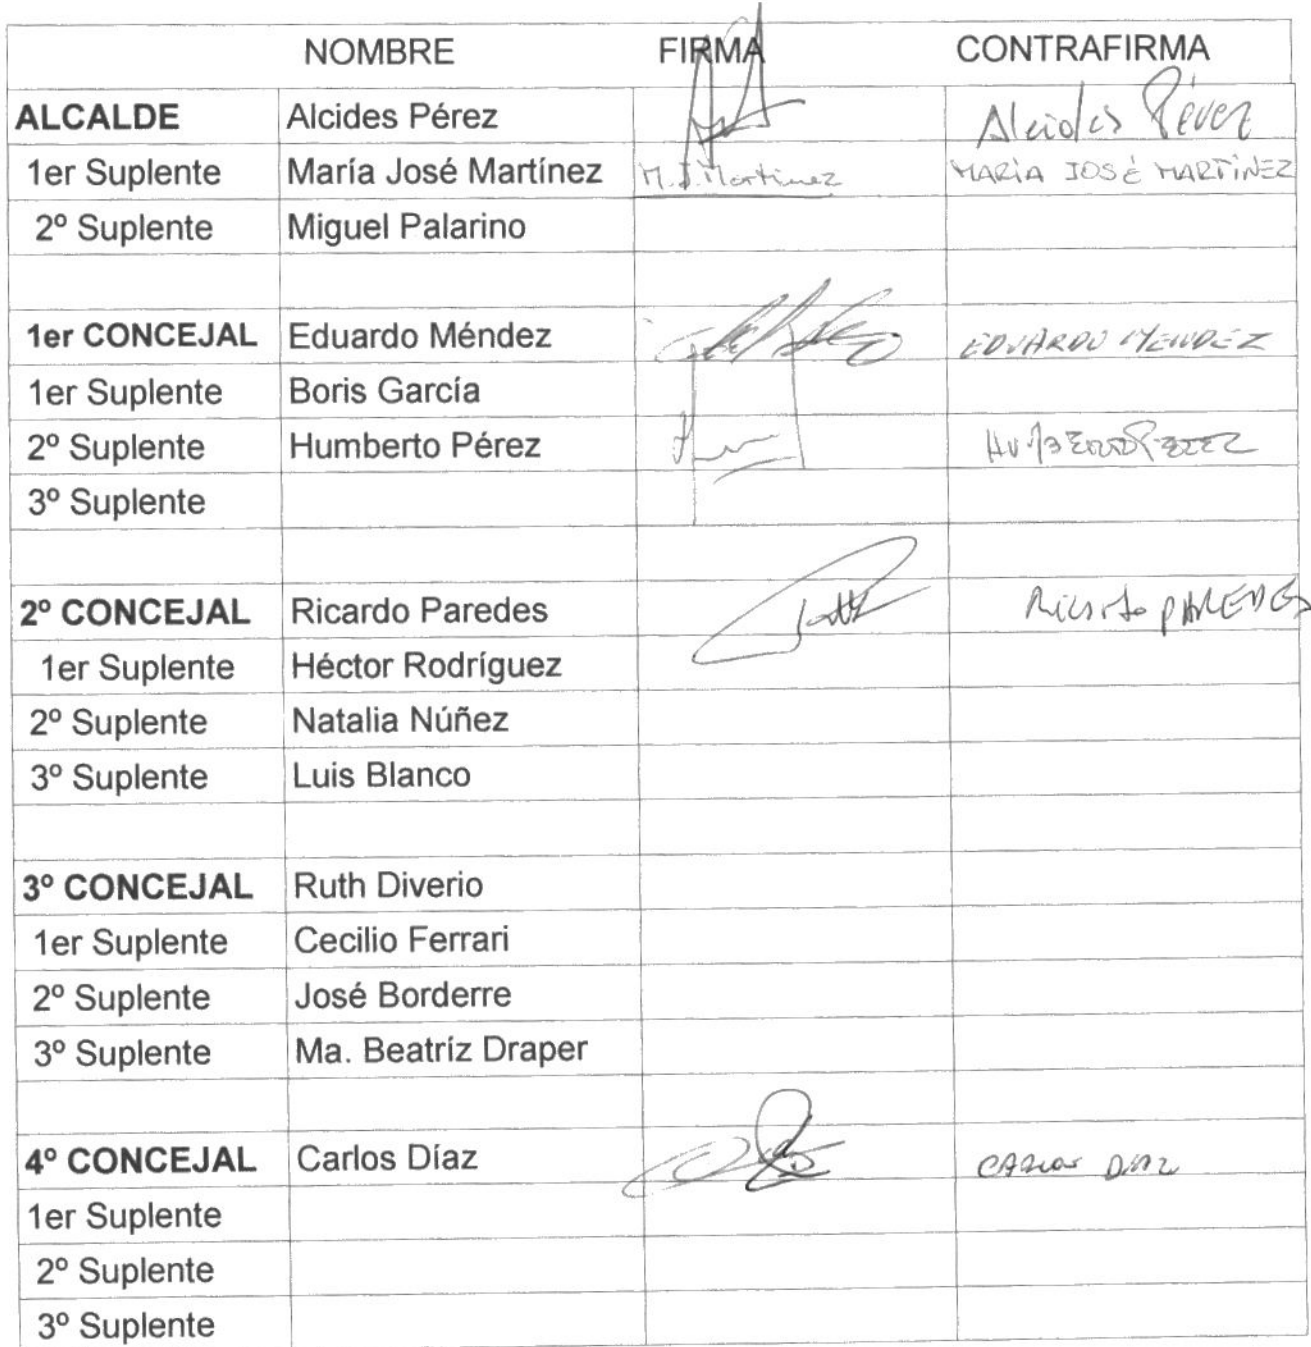 NOMBRE FIRMA CONTRAFIRMA
ALCALDE Alcides Pérez Alcides Pérez
1er Suplente María José Martínez M.J.Martinez MARÍA JOSÉ MARTÍNEZ
2º Suplente Miguel Palarino
1er CONCEJAL Eduardo Méndez EDUARDO MENDEZ
1er Suplente Boris García
2º Suplente Humberto Pérez HUMBERTO PEREZ
3º Suplente
2º CONCEJAL Ricardo Paredes Ricardo PAREDES
1er Suplente Héctor Rodríguez
2º Suplente Natalia Núñez
3º Suplente Luis Blanco
3º CONCEJAL Ruth Diverio
1er Suplente Cecilio Ferrari
2º Suplente José Borderre
3º Suplente Ma. Beatríz Draper
4º CONCEJAL Carlos Díaz CARLOS DIAZ
1er Suplente
2º Suplente
3º Suplente